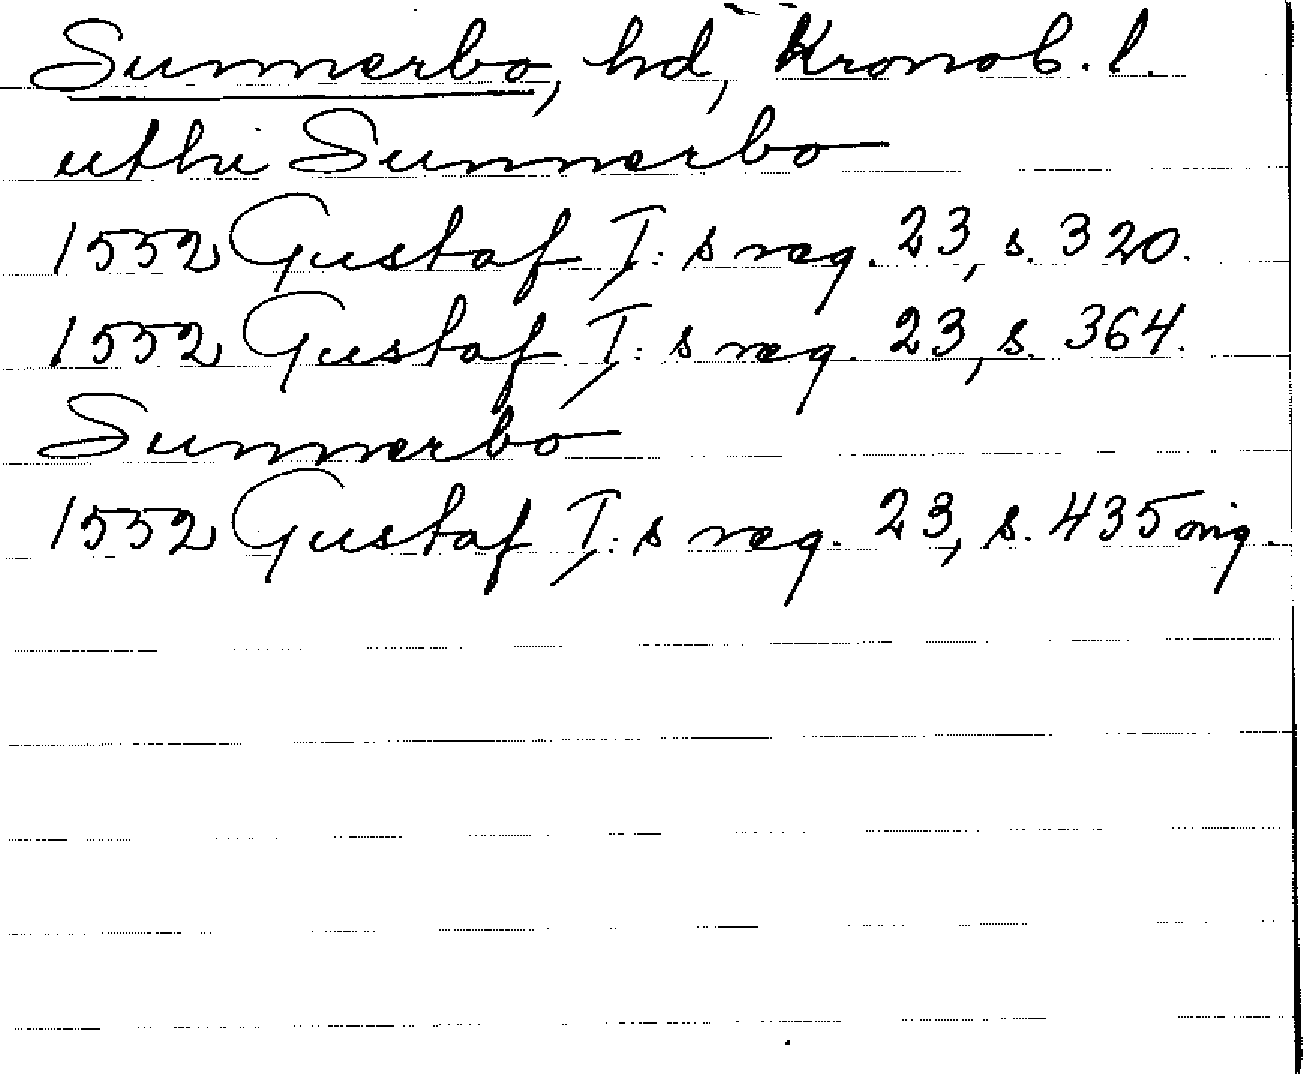 Sunnerbo, hd, Kronob. l.
uthi Sunnerbo
1552 Gustaf I:s reg. 23, s. 320.
1552 Gustaf I:s reg. 23, s. 364.
Sunnerbo
1552 Gustaf I:s reg. 23, s. 435 orig.